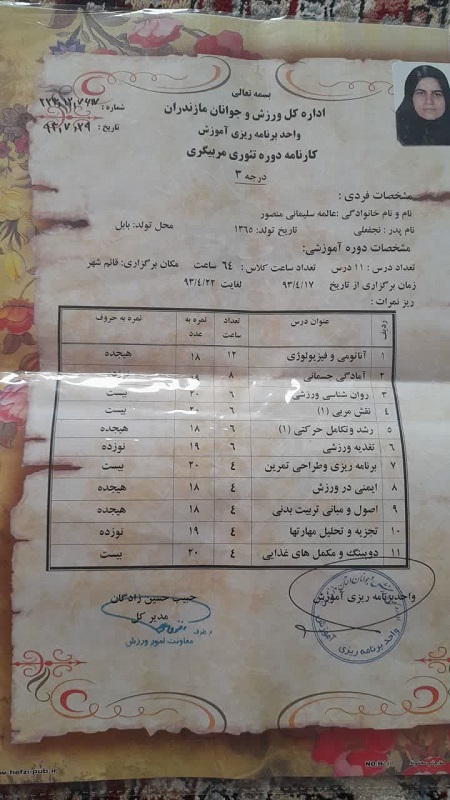 بسمه تعالی
اداره کل ورزش و جوانان مازندران
واحد برنامه ریزی آموزش
کارنامه دوره تئوری مربیگری
درجه ۳
شماره :
تاریخ : ۹۳,۷,۲۹
مشخصات فردی :
نام و نام خانوادگی :عالمه سلیمانی منصور
نام پدر : نجفعلی تاریخ تولد: ۱۳۶۵ محل تولد: بابل
مشخصات دوره آموزشی:
تعداد درس : ۱۱ درس تعداد ساعت کلاس : ۶۴ ساعت مکان برگزاری: قائم شهر
زمان برگزاری از تاریخ ۹۳/۴/۱۷ لغایت ۹۳/۴/۲۲
ریز نمرات :
ردیف عنوان درس تعداد ساعت نمره به عدد نمره به حروف
۱ آناتومی و فیزیولوژی ۱۲ ۱۸ هیجده
۲ آمادگی جسمانی ۸ ۱۹
۳ روان شناسی ورزشی ۶ ۲۰ بیست
۴ نقش مربی (۱) ۶ ۲۰ بیست
۵ رشد وتکامل حرکتی (۱) ۶ ۱۸ هیجده
۶ تغذیه ورزشی ۶ ۱۹ نوزده
۷ برنامه ریزی وطراحی تمرین ۴ ۲۰ بیست
۸ ایمنی در ورزش ۴ ۱۸ هیجده
۹ اصول و مبانی تربیت بدنی ۴ ۱۸ هیجده
۱۰ تجزیه و تحلیل مهارتها ۴ ۱۹ نوزده
۱۱ دوپینگ و مکمل های غذایی ۴ ۲۰ بیست
واحدبرنامه ریزی آموزش
حبیب حسین زادگان
مدیر کل
از طرف
معاونت امور ورزش
واحد برنامه ریزی آموزش
www.hafzi-pub.ir